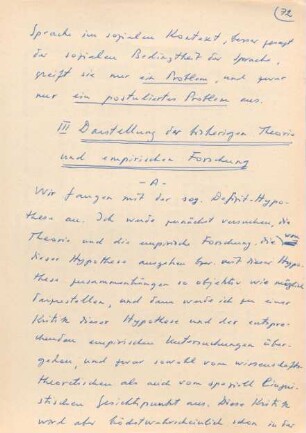 72
Sprache im sozialen Kontext, besser gesagt
der sozialen Bedingtheit der Sprache,
greift sie nur ein Problem, und zwar
nur ein postuliertes Problem aus.
III Darstellung der bisherigen Theorie
und empirischen Forschung
- A -
Wir fangen mit der sog. Defizit-Hypo-
these an. Ich werde zunächst versuchen, die
Theorie und die empirische Forschung, die von
dieser Hypothese ausgehen bzw. mit dieser Hypo-
these zusammenhängen so objektiv wie möglich
darzustellen, und dann werde ich zu einer
Kritik dieser Hypothese und der entspre-
chenden empirischen Untersuchungen über-
gehen, und zwar sowohl vom wissenschafts-
theoretischen als auch vom speziell linguis-
tischen Gesichtspunkt aus. Diese Kritik
wird aber höchstwahrscheinlich schon in der